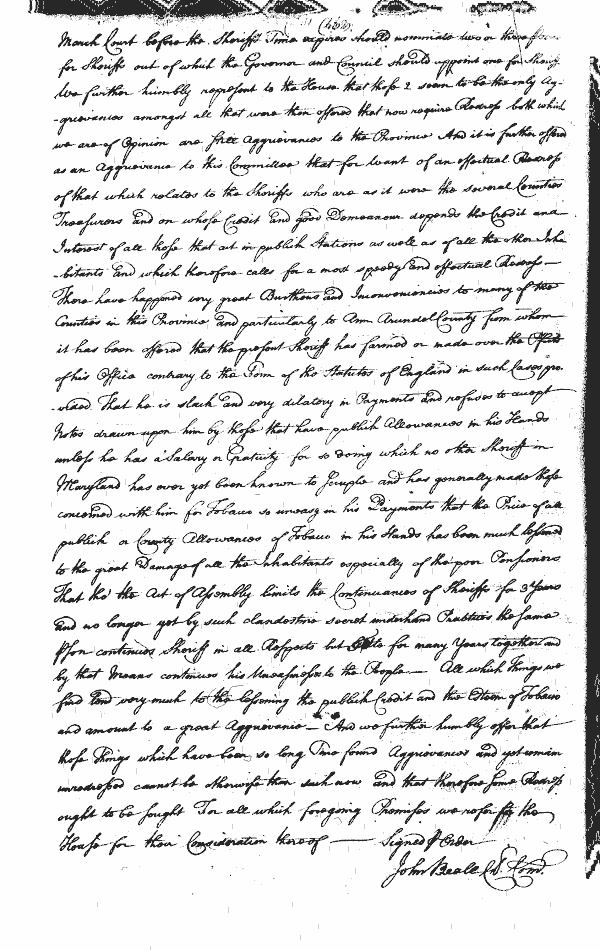 March Court before the Sheriffs Time expires should nominate two or three
for Sheriffs out of which the Governor and Council should appoint one for Sheriff
We further humbly represent to the House that those 2 seem to be the only Ag-
-grievances amongst all that were then offered that now require Redress both which
we are of Opinion are still Aggrievances to the Province And it is further offered
as an Aggrievance to this Committee that for want of an effectual Redress
of that which relates to the Sheriffs who are as it were the several Counties
Treasurers and on whose Credit and good Demeanour depends the Credit and
Interest of all those that act in publick Stations as well as of all the other Inha
-bitants and which therefore calls for a most speedy and effectual Redress —
There have happened very great Burthens and Inconveniencies to many of the
Counties in this Province and particularly to Ann Arundel County from whom
it has been offered that the present Sheriff has farmed or made over the
of his Office contrary to the Form of the Statutes of England in such Cases pro
-vided That he is slack and very dilatory in Payments and refuses to accept
Notes drawn upon him by those that have publick Allowances in his Hands
unless he has a Salary or Gratuity for so doing which no other Sheriff in
Maryland has ever yet been known to Scruple and has generally made those
concerned with him for Tobacco so uneasy in his Payments that the Price of all
publick or County Allowances of Tobacco in his Hands has been much lessened
to the great Damage of all the Inhabitants especially of the poor Pensioners
That tho' the Act of Assembly limits the Continuances of Sheriffs for 3 Years
and no longer yet by such clandestine secret underhand Practices the same
Person continues Sheriff in all Respects but for many Years together and
by that Means continues his Uneasinesses to the People — All which Things we
find tend very much to the lessening the publick Credit and the Esteem of Tobacco
and amount to a great Aggrievance — And we further humbly offer that
those Things which have been so long Time found Aggrievances and yet remain
unredressed cannot be otherwise than such now and that therefore some Redress
ought to be sought For all which foregoing Premisses we refer to the
House for their Consideration thereof — Signed p Order
John Beall Cl. Com.